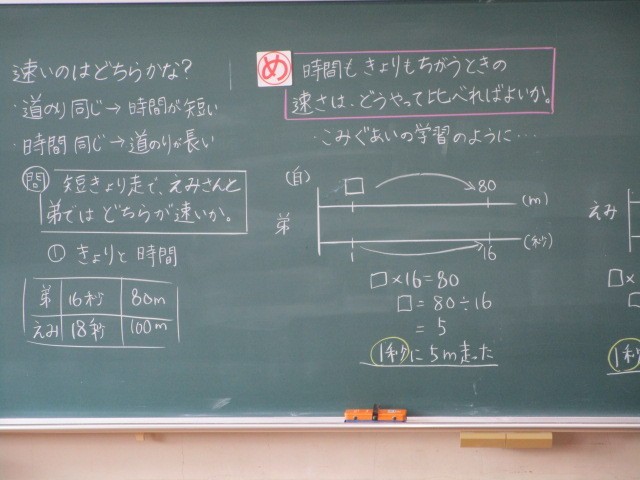 速いのはどちらかな?
・道のり同じ→時間が短い
・時間同じ→道のりが長い
問 短きょり走で、えみさんと
弟ではどちらが速いか。
① きょりと時間
弟 16秒 80m
えみ 18秒 100m
め 時間もきょりもちがうときの
速さは、どうやって比べればよいか。
・こみぐあいの学習のように…
(自)
□ 80 (m)
弟
1 16 (秒)
□×16=80
□=80÷16
=5
1秒に5m走った
えみ
□×
□
1秒